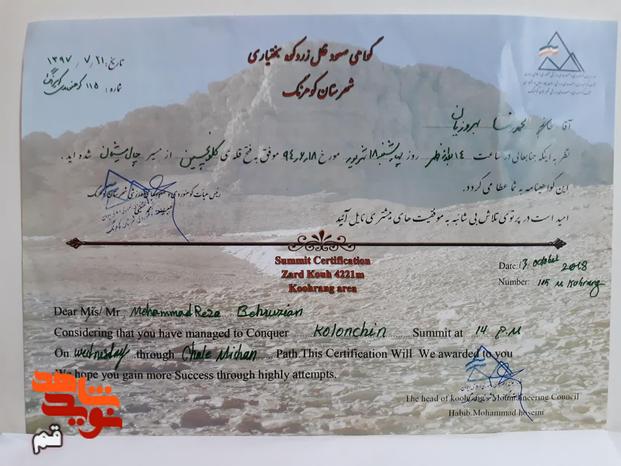 تاریخ: ۱۳۹۷/۷/۱۱
شماره: ۱۱۵ کوهنوردی کوهرنگ
گواهی صعود قلل زردکوه بختیاری
شهرستان کوهرنگ
آقا خانم محمدرضا بهروزیان
نظر به اینکه جنابعالی در ساعت ۱۴ روز چهارشنبه ۱۸ شهریور مورخ موفق به فتح قله ی کلونچین از مسیر چال میشان شده اید.
این گواهینامه به شما عطا می گردد.
امید است در پرتوی تلاش بی شائبه به موفقیت های بیشتری نایل آئید
رئیس هیات کوهنوردی و صعودهای ورزشی شهرستان کوهرنگ
Summit Certification
Zard Kouh 4221m
Koohrang area
Date: 3 october 2018
Number: 115 M Kohrang
Dear Mis/ Mr Mohammad Reza Behruzian
Considering that you have managed to Conquer Kolonchin Summit at 14 P.M
On wednsday through Chale Mishan Path.This Certification Will We awarded to you
We hope you gain more Success through highly attempts.
The head of koohrang's Mountineering Council
Habib.Mohammad hoseini
نوید شاهد
قم